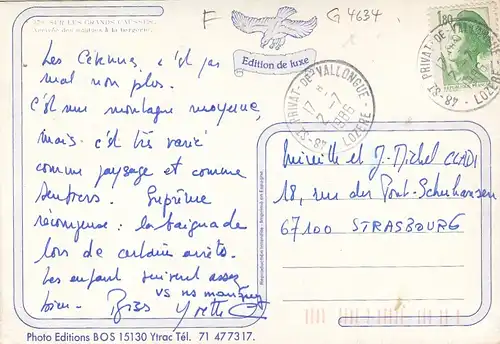 SUR LES GRANDS CAUSSES.
Arrivée des nautes à la bergerie.
F
G 4634
Edition de luxe
1,80
48-ST PRIVAT-DE-VALLONGUE
17 H
2-7
1986
LOZERE
Les Cévennes, c'est pas
mal non plus.
C'est une montagne moyenne,
mais c'est très varié
comme paysage et comme
sentiers. Suprême
récompense : la baignade
lors de certains arrêts.
Les enfants suivent assez
bien. vs ns manquez
Bises Yvette
Mireille et J-Michel
18, rue du Pont-Schuhansen
67100 STRASBOURG
Reproduction interdite - Imprimé en Espagne.
Photo Editions BOS 15130 Ytrac Tél. 71 477317.